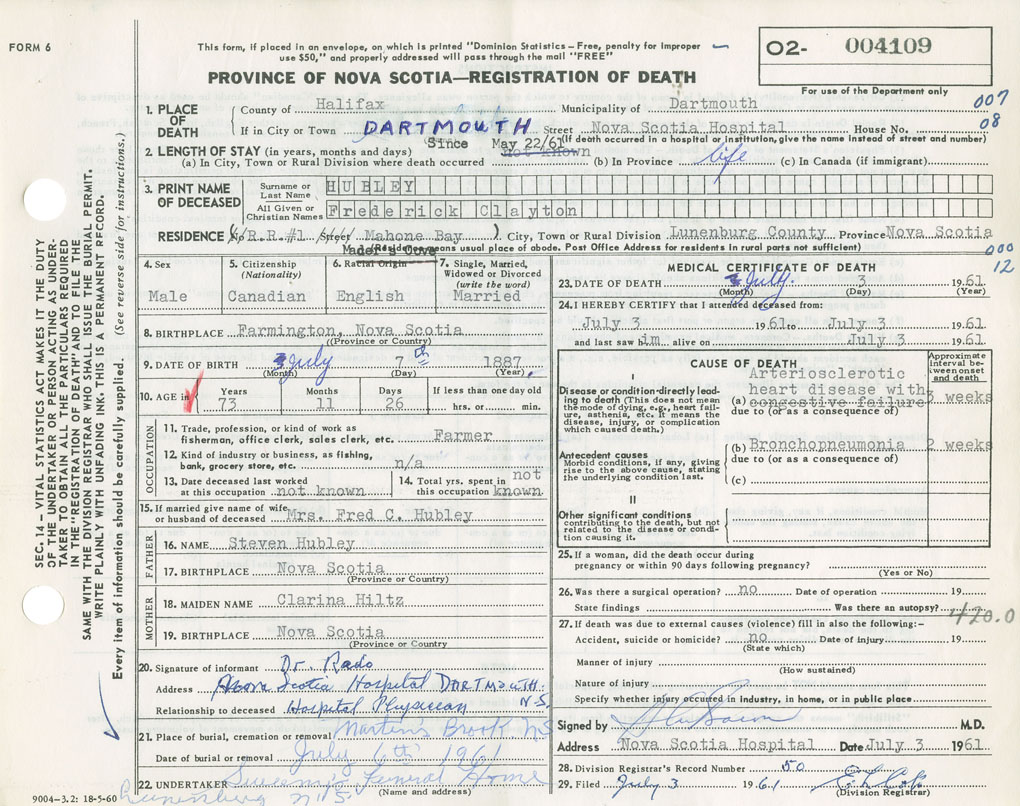 FORM 6
This form, if placed in an envelope, on which is printed "Dominion Statistics – Free, penalty for improper
use $50," and properly addressed will pass through the mail "FREE"
PROVINCE OF NOVA SCOTIA—REGISTRATION OF DEATH
O2- 004109
For use of the Department only
007
08
1. PLACE OF DEATH
County of Halifax Municipality of Dartmouth
If in City or Town DARTMOUTH Street Nova Scotia Hospital House No.
(If death occurred in a hospital or institution, give the name instead of street and number)
Since May 22/61
2. LENGTH OF STAY (in years, months and days)
(a) In City, Town or Rural Division where death occurred not known (b) In Province life (c) In Canada (if immigrant)
3. PRINT NAME OF DECEASED
Surname or Last Name HUBLEY
All Given or Christian Names Frederick Clayton
RESIDENCE (No R.R.#1 Street Mahone Bay) City, Town or Rural Division Lunenburg County Province Nova Scotia
Mader's Cove
(Residence means usual place of abode. Post Office Address for residents in rural parts not sufficient)
000
12
4. Sex
Male
5. Citizenship (Nationality)
Canadian
6. Racial Origin
English
7. Single, Married, Widowed or Divorced (write the word)
Married
8. BIRTHPLACE Farmington, Nova Scotia
(Province or Country)
9. DATE OF BIRTH July 7th 1887
(Month) (Day) (Year)
10. AGE in
Years Months Days If less than one day old
73 11 26 hrs. or min.
OCCUPATION
11. Trade, profession, or kind of work as
fisherman, office clerk, sales clerk, etc. Farmer
12. Kind of industry or business, as fishing,
bank, grocery store, etc. n/a
13. Date deceased last worked
at this occupation not known
14. Total yrs. spent in
this occupation not known
15. If married give name of wife
or husband of deceased Mrs. Fred C. Hubley
FATHER
16. NAME Steven Hubley
17. BIRTHPLACE Nova Scotia
(Province or Country)
MOTHER
18. MAIDEN NAME Clarina Hiltz
19. BIRTHPLACE Nova Scotia
(Province or Country
20. Signature of informant Dr. Rado
Address Nova Scotia Hospital DARTMOUTH. N.S.
Relationship to deceased Hospital Physician
21. Place of burial, cremation or removal Martins Brook NS
Date of burial or removal July 6th 1961
22. UNDERTAKER Funeral Home
(Name and address)
Lunenburg N.S.
9004–3.2: 18-5-60
MEDICAL CERTIFICATE OF DEATH
23. DATE OF DEATH July. 3 1961
(Month) (Day) (Year)
24. I HEREBY CERTIFY that I attended deceased from:
July 3 1961 to July 3 1961
and last saw him alive on July 3 1961
CAUSE OF DEATH
Approximate interval between onset and death
I
Disease or condition directly leading to death (This does not mean the mode of dying, e.g., heart failure, asthenia, etc. It means the disease, injury, or complication which caused death.)
Arteriosclerotic
heart disease with
(a) congestive failure 3 weeks
due to (or as a consequence of)
Antecedent causes
Morbid conditions, if any, giving rise to the above cause, stating the underlying condition last.
(b) Bronchopneumonia 2 weeks
due to (or as a consequence of)
(c)
II
Other significant conditions
contributing to the death, but not related to the disease or condition causing it.
25. If a woman, did the death occur during
pregnancy or within 90 days following pregnancy?
(Yes or No)
26. Was there a surgical operation? no Date of operation 19
State findings Was there an autopsy?
420.0
27. If death was due to external causes (violence) fill in also the following:–
Accident, suicide or homicide? no Date of injury 19
(State which)
Manner of injury
(How sustained)
Nature of injury
Specify whether injury occurred in industry, in home, or in public place
Signed by M.D.
Address Nova Scotia Hospital Date July 3 1961
28. Division Registrar's Record Number 50
29. Filed July 3 1961
(Division Registrar)
SEC. 14 – VITAL STATISTICS ACT MAKES IT THE DUTY
OF THE UNDERTAKER OR PERSON ACTING AS UNDER-
TAKER TO OBTAIN ALL THE PARTICULARS REQUIRED
IN THE "REGISTRATION OF DEATH" AND TO FILE THE
SAME WITH THE DIVISION REGISTRAR WHO SHALL ISSUE THE BURIAL PERMIT.
WRITE PLAINLY WITH UNFADING INK. THIS IS A PERMANENT RECORD.
Every item of information should be carefully supplied. (See reverse side for instructions.)